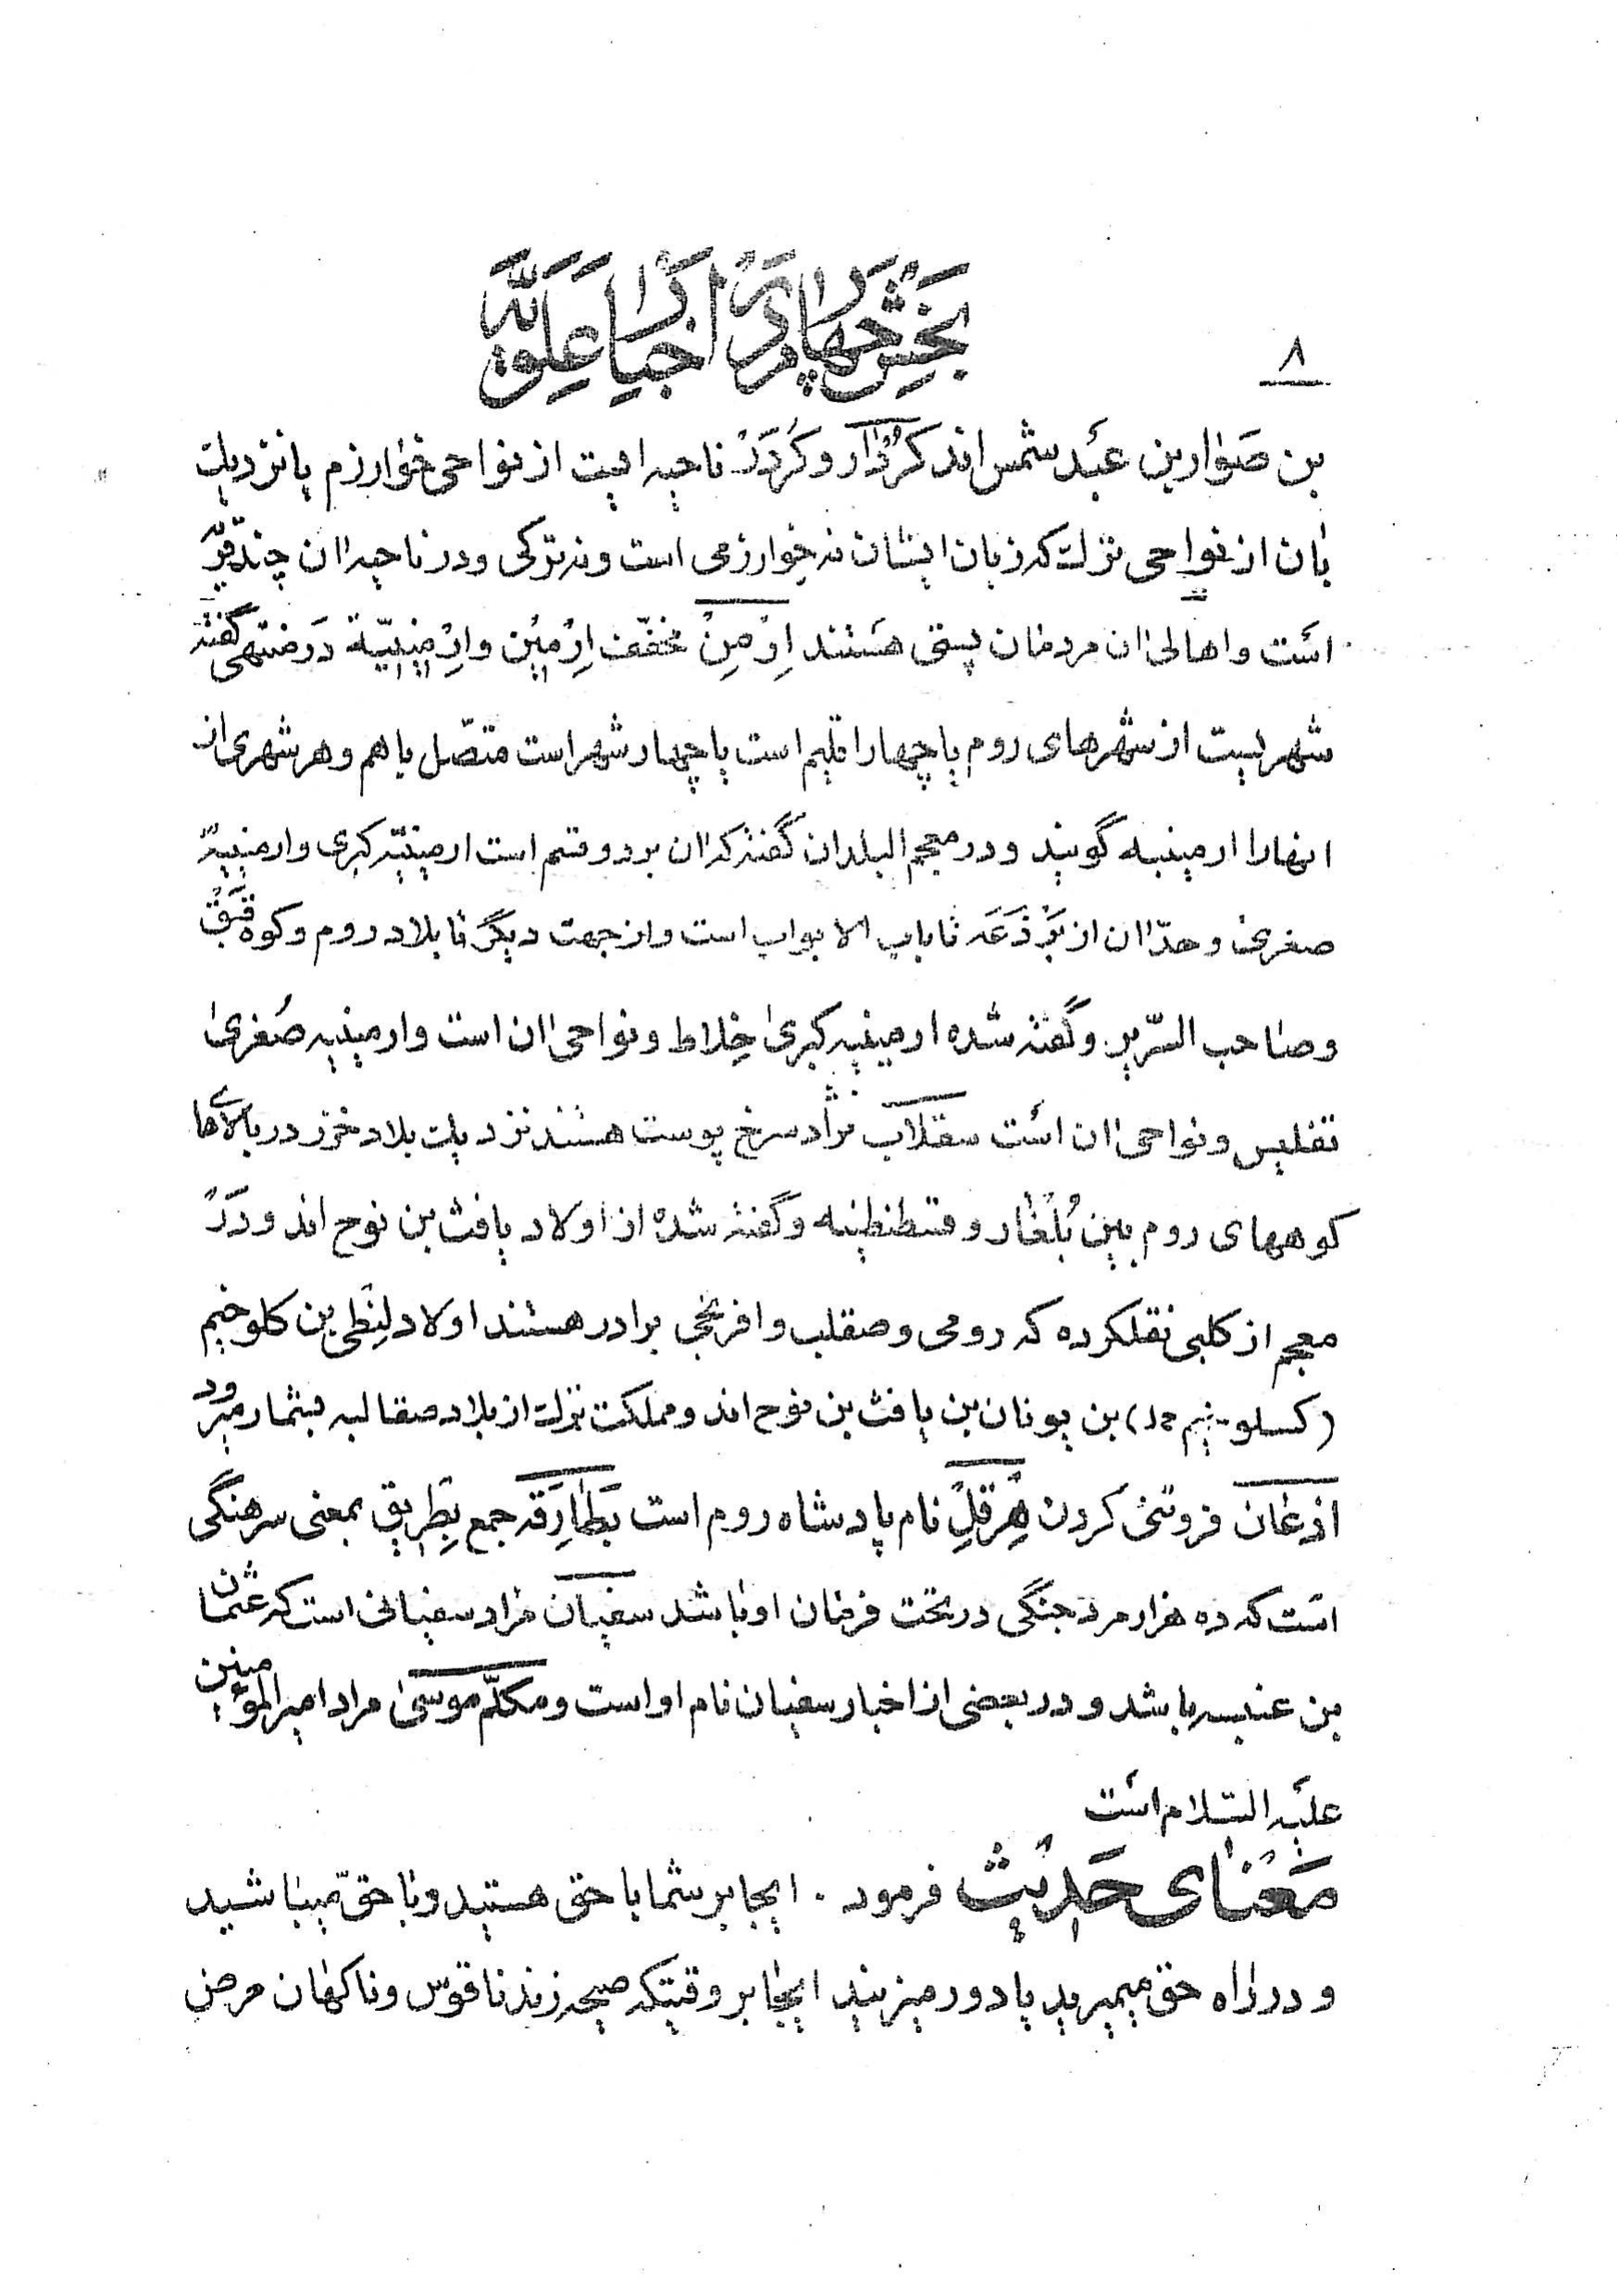 ۸
بخش چهارم در اخبار علویّه
بن صَوار بن عبد شمس اند کُردار و کَردَر ناحیه ایست از نواحی خوارزم یا نزدیک
بان از نواحی ترک که زبان ایشان نه خوارزمی است و نه ترکی و در ناحیه ان چند قریّه
است و اهالی ان مردمان پستی هستند اِرمِن مخفّف اِرمیٖن و اِرمیٖنیّة در منتهی گفته
شهریست از شهرهای روم یا چهار اقلیم است یا چهار شهر است متصّل باهم و هر شهری از
انهارا ارمینیه گویند و در معجم البلدان گفته که ان بر دو قسم است ارمینیّه کبری و ارمینیّه
صغری و حدّ ان از بَرذَعَه تا باب الابواب است و از جهت دیگر تا بلاد روم و کوه قَبَق
و صاحب السّریر و گفته شده ارمینیه کبریٰ خِلاط و نواحی ان است و ارمینیه صُغریٰ
تفلیس و نواحی ان است سقلاب نژاد سرخ پوست هستند نزدیک بلاد خزر در بالای ها
کوههای روم بین بُلغار و قسطنطنیه و گفته شده از اولاد یافث بن نوح اند و دَرَ
معجم از کلبی نقلکرده که رومی و صقلب و افرنجی برادر هستند اولاد لِنطی بن کلوخیم
(کسلوخیم خ‌د) بن یونان بن یافث بن نوح اند و مملکت ترک از بلاد صقالبه بشمار میرود
اذعان فروتنی کردن هِرقِل نام پادشاه روم است بَطارِقه جمع بِطریق بمعنی سرهنگی
است که ده هزار مرد جنگی در تحت فرمان او باشد سفیان مراد سفیانی است که عثمان
بن عنبسه باشد و در بعضی از اخبار سفیان نام او است و مکلّم موسیٰ مراد امیرالمؤمنین
علیه السّلام است
معنای حدیث فرمود . ایجابر شما با حق هستید و با حقّ میباشید
و در راه حق میمیرید یا دور میزنید ایجابر وقتیکه صیحه زند ناقوس و ناکهان مرض